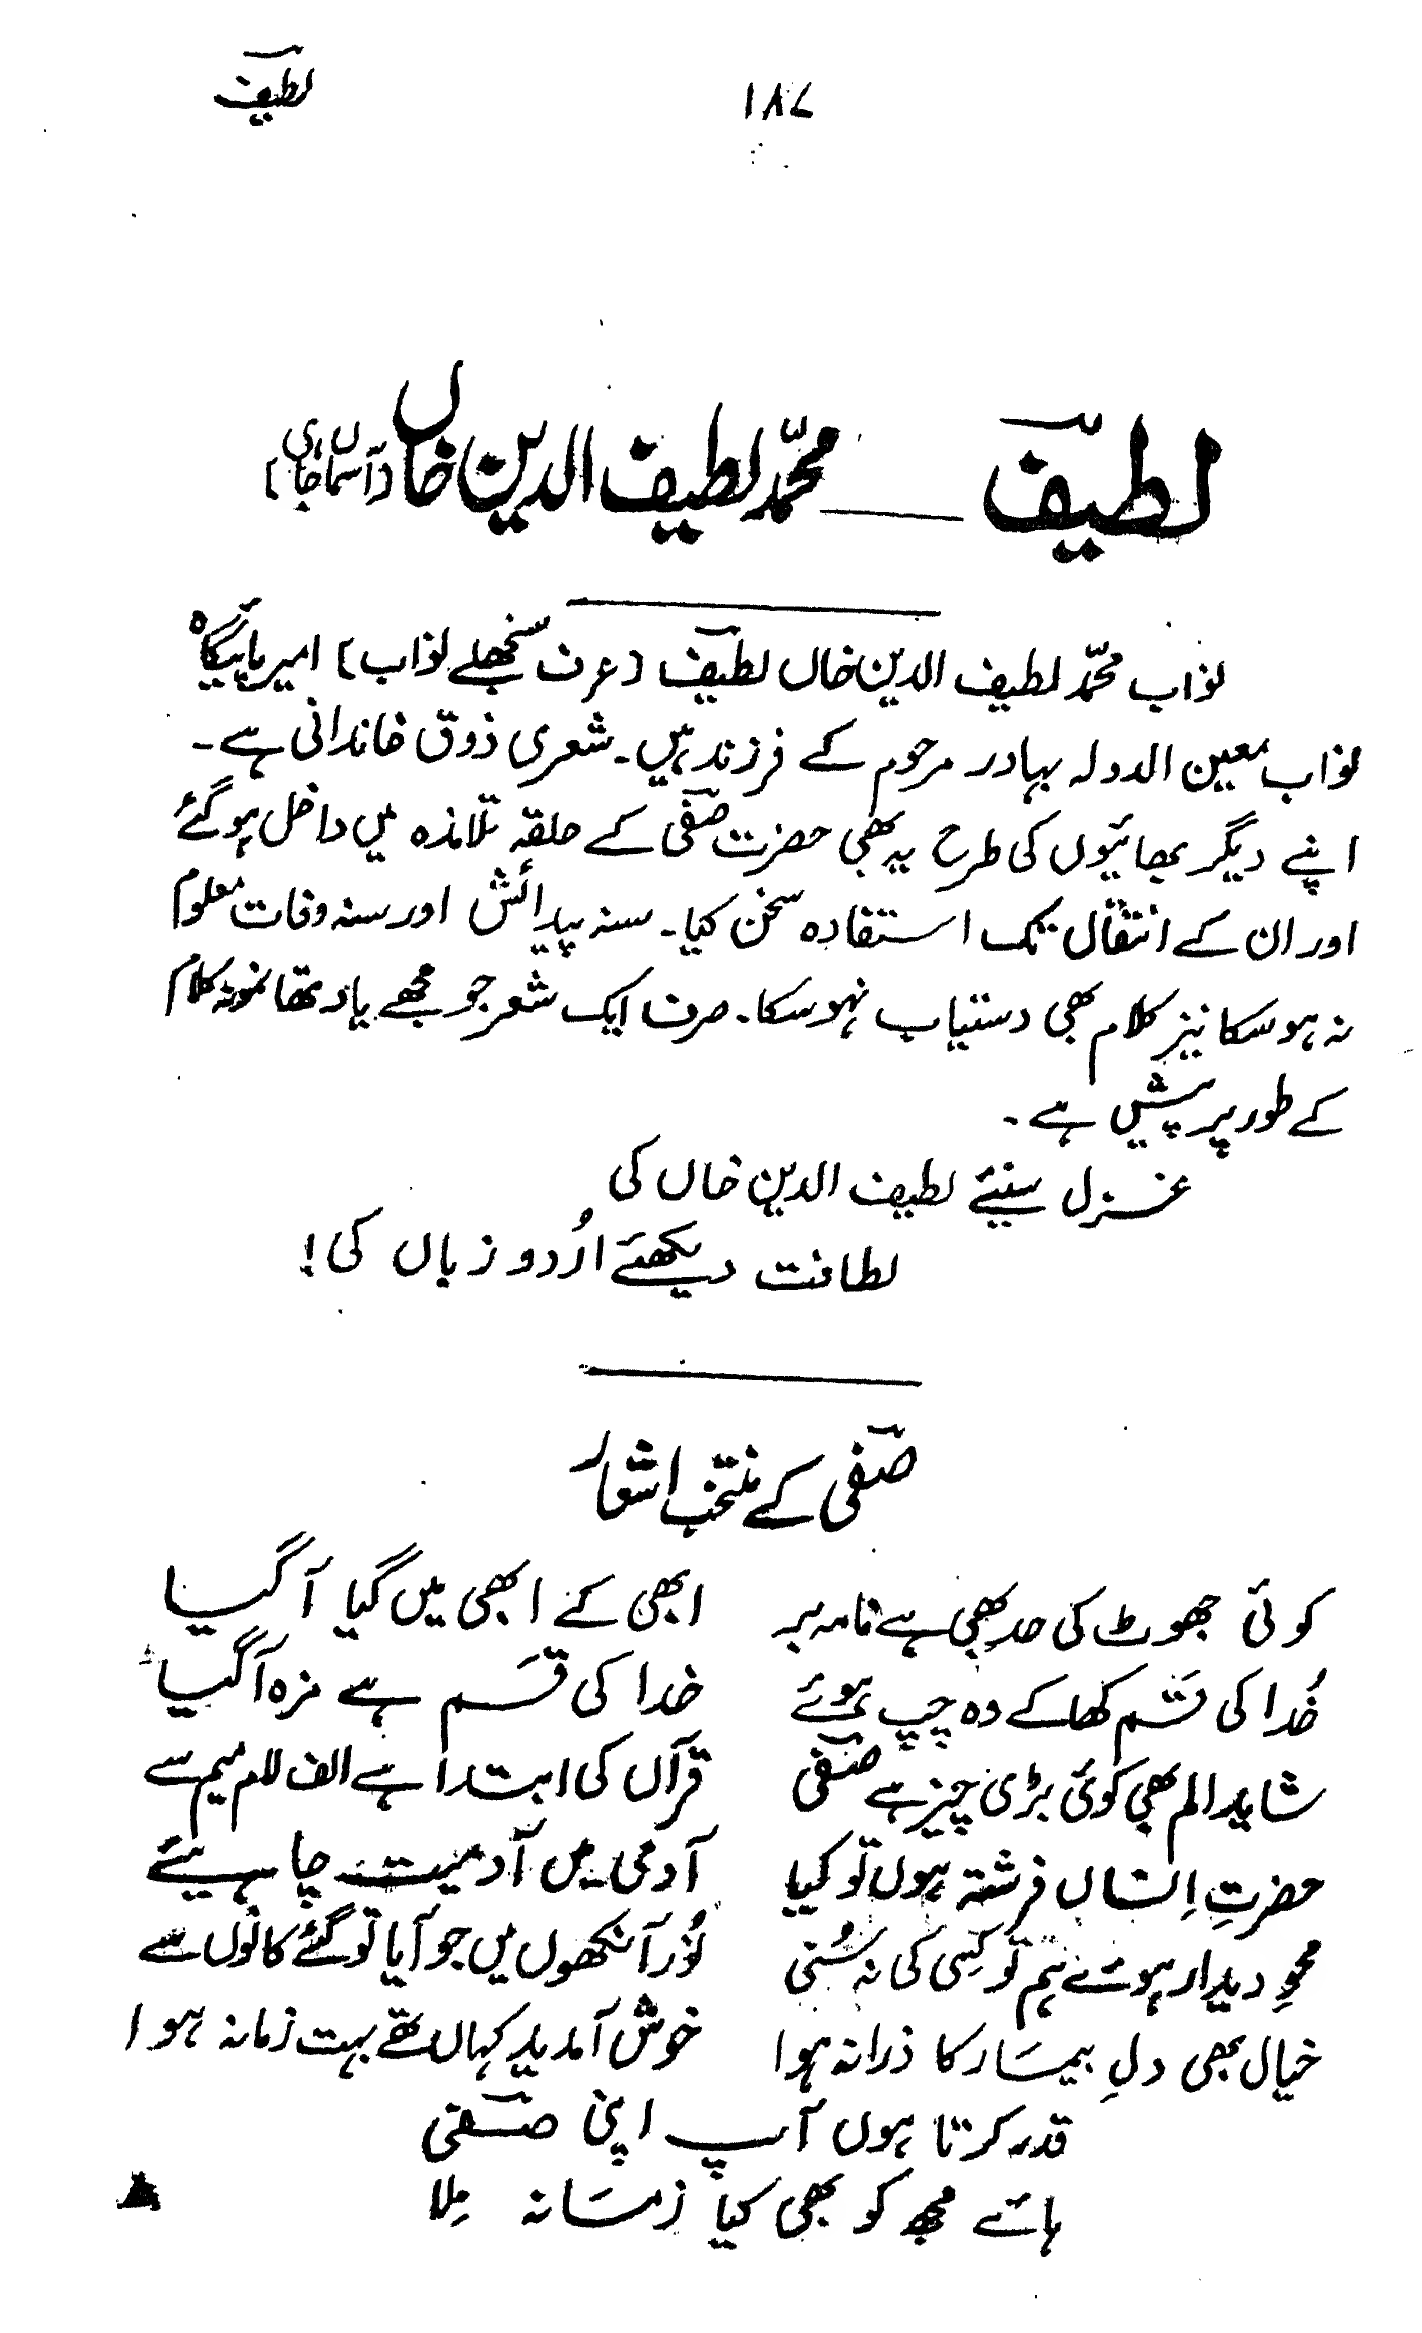 ۱۸۷
لطیفؔ
لطیفؔ — محمّد لطیف الدین خاں (آسماں جاہی)
نواب محمّد لطیف الدین خاں لطیفؔ (عرف سنجھلے نواب) امیر پائیگاہ
نواب معین الدولہ بہادر مرحوم کے فرزند ہیں۔ شعری ذوق خاندانی ہے۔
اپنے دیگر بھائیوں کی طرح یہ بھی حضرت صفیؔ کے حلقہ تلامذہ میں داخل ہو گئے
اور ان کے انتقال تک استفادہ سخن کیا۔ سنہ پیدائش اور سنہ وفات معلوم
نہ ہو سکا نیز کلام بھی دستیاب نہو سکا۔ صرف ایک شعر جو مجھے یاد تھا نمونہ کلام
کے طور پر پیش ہے۔
غزل سنیئے لطیف الدین خاں کی
لطافت دیکھئے اُردو زباں کی!
صفیؔ کے منتخب اشعار
کوئی جھوٹ کی حد بھی ہے نامہ بر ابھی کے ابھی میں گیا آ گیا
خُدا کی قسم کھا کے وہ چپ ہوئے خدا کی قسَم ہے مزہ آ گیا
شاید الم بھی کوئی بڑی چیز ہے صفیؔ قرآں کی ابتدا ہے الف لام میم سے
حضرتِ اِنساں فرشتہ ہوں تو کیا آدمی میں آدمیت چاہیئے
محوِ دیدار ہوئے ہم تو کِسی کی نہ سُنی نُور آنکھوں میں جو آیا تو گئے کانوں سے
خیال بھی دلِ بیمار کا ذرا نہ ہوا خوش آمدید کہاں تھے بہت زمانہ ہوا
قدر کرتا ہوں آپ اپنی صفیؔ
ہائے مجھ کو بھی کیا زمانہ مِلا